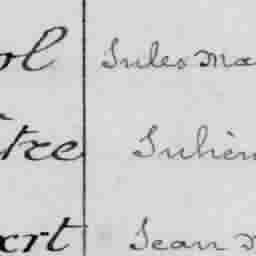 ol Jules Ma
tre Julien
ert Jean